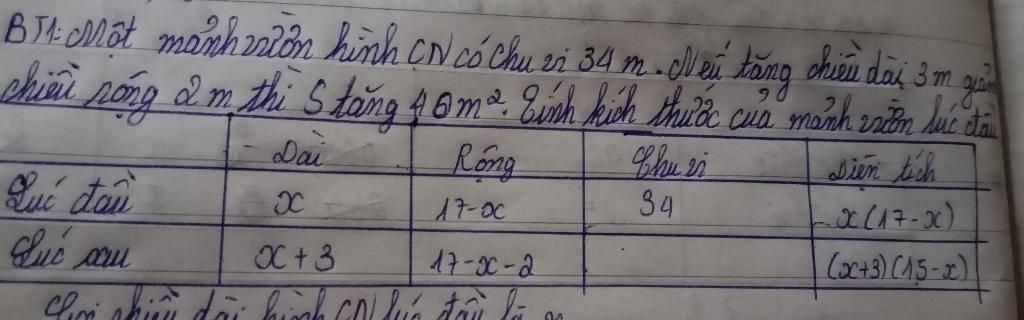 BT1: Một mảnh vườn hình CN có chu vi 34 m. Nếu tăng chiều dài 3 m giảm
chiều rộng 2 m thì S tăng 45 m². Tính kích thước của mảnh vườn lúc đầu
Dài Rộng Chu vi Diện tích
Lúc đầu x 17-x 34 x(17-x)
Lúc sau x+3 17-x-2 (x+3)(15-x)
Gọi chiều dài hình CN lúc đầu là x